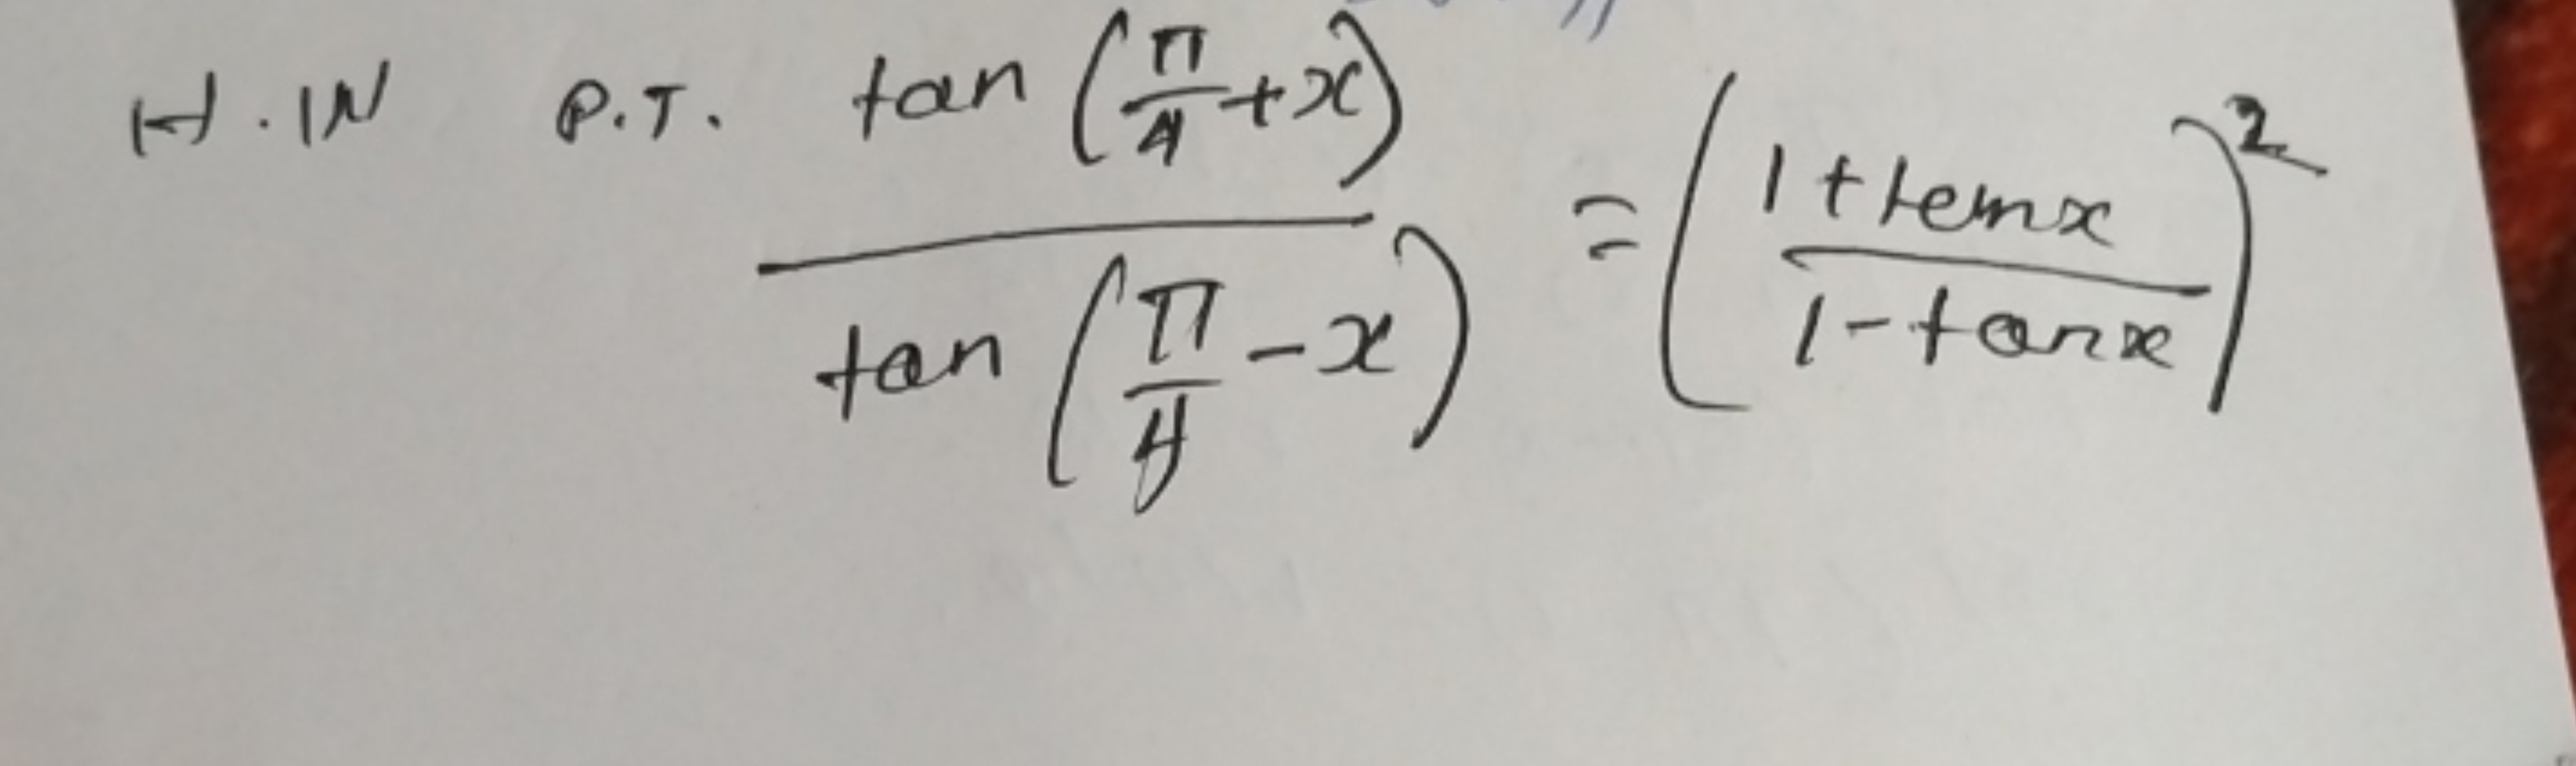 H.W P.T. tan (π/4 + x) / tan (π/4 - x) = ((1 + tan x) / (1 - tan x))²